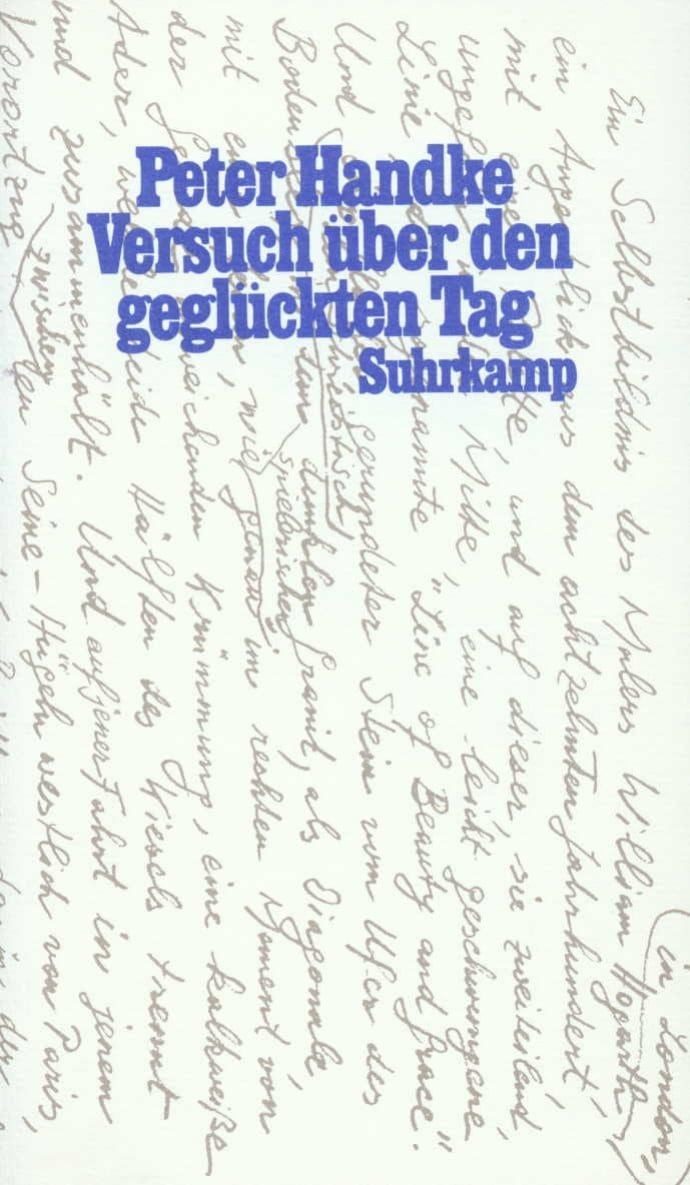 Peter Handke
Versuch über den
geglückten Tag
Suhrkamp
Ein Selbstbildnis des Malers William Hogarth, in London,
ein Augenblick aus dem achtzehnten Jahrhundert,
mit einer Palette, und auf dieser, sie zweiteilend,
Mitte, eine leicht geschwungene
Linie genannte "Line of Beauty and Grace".
Und gerundeter Stein vom Ufer des
dunkler Granit, als Diagonale,
mit spielerischen, wie genau im rechten Moment von
der weichenden Krümmung, eine kalkweiße
Ader, welche beide Hälften des Kiesels trennt
und zusammenhält. Und auf jener Fahrt in jenem
Vorortzug zwischen den Seine-Hügeln westlich von Paris,